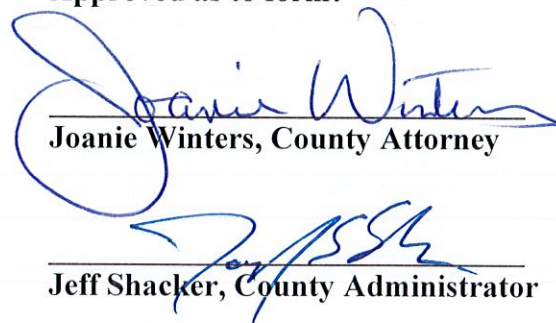 Approved as to form:
Joanie Winters
Joanie Winters, County Attorney
Jeff Shacker, County Administrator